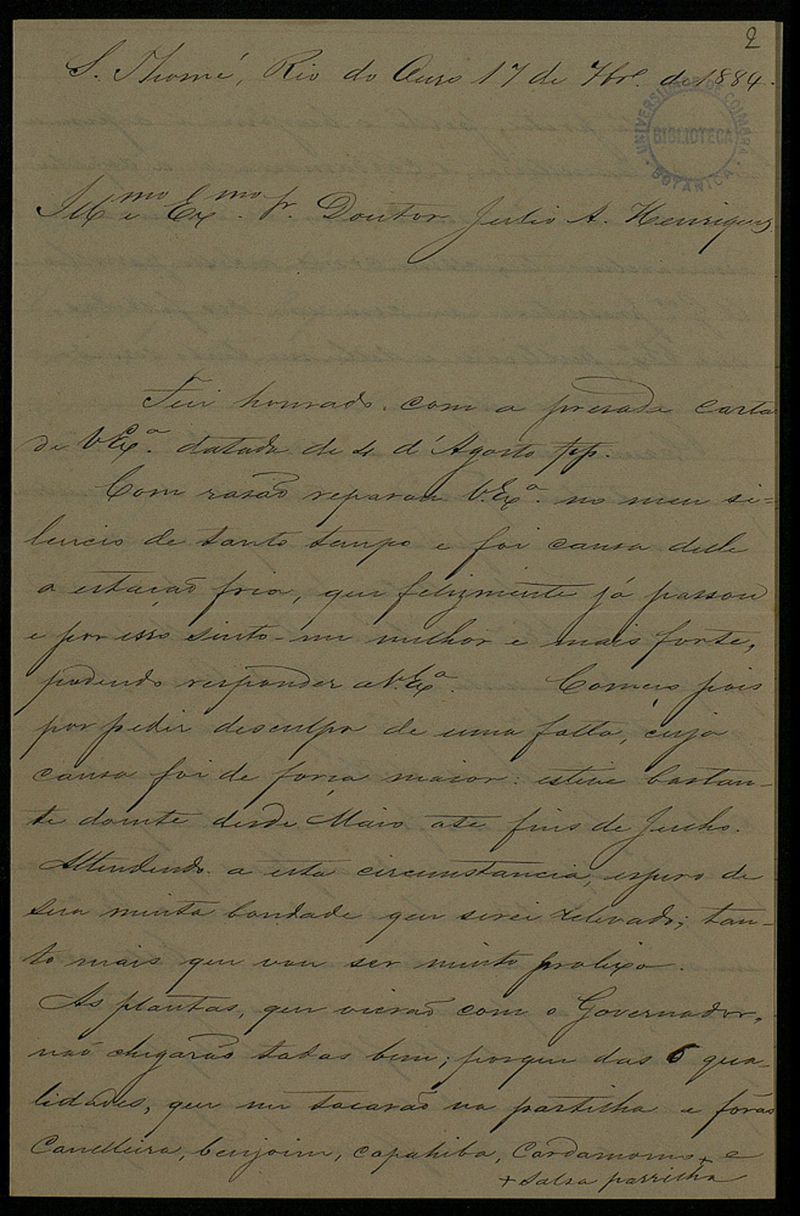 2
S. Thomé, Rio do Ouro 17 de 7bro. de 1884.
UNIVERSIDADE DE COIMBRA
BIBLIOTECA
BOTANICA
Illmo e Exmo. Sr. Doutor Julio A. Henriques
Fui honrado com a presada carta
de V.Exa. datada de 4 d'Agosto pp.
Com rasão reparou V.Exa. no meu si-
lencio de tanto tempo e foi causa delle
a estação fria, que felizmente já passou
e por isso sinto-me melhor e mais forte,
podendo responder a V.Exa. Começo pois
por pedir desculpa de uma falta, cuja
causa foi de força maior: estive bastan-
te doente desde Maio até fins de Junho.
Attendendo a esta circumstancia, espero de
sua muita bondade que serei relevado; tan-
to mais que vou ser muito prolixo.
As plantas, que vierão com o Governador,
não chegarão todas bem; porque das 6 qua-
lidades, que me tocarão na partilha e forão
Canelleira, benjoim, copahiba, Cardamomo + e
+ salsa parrilha